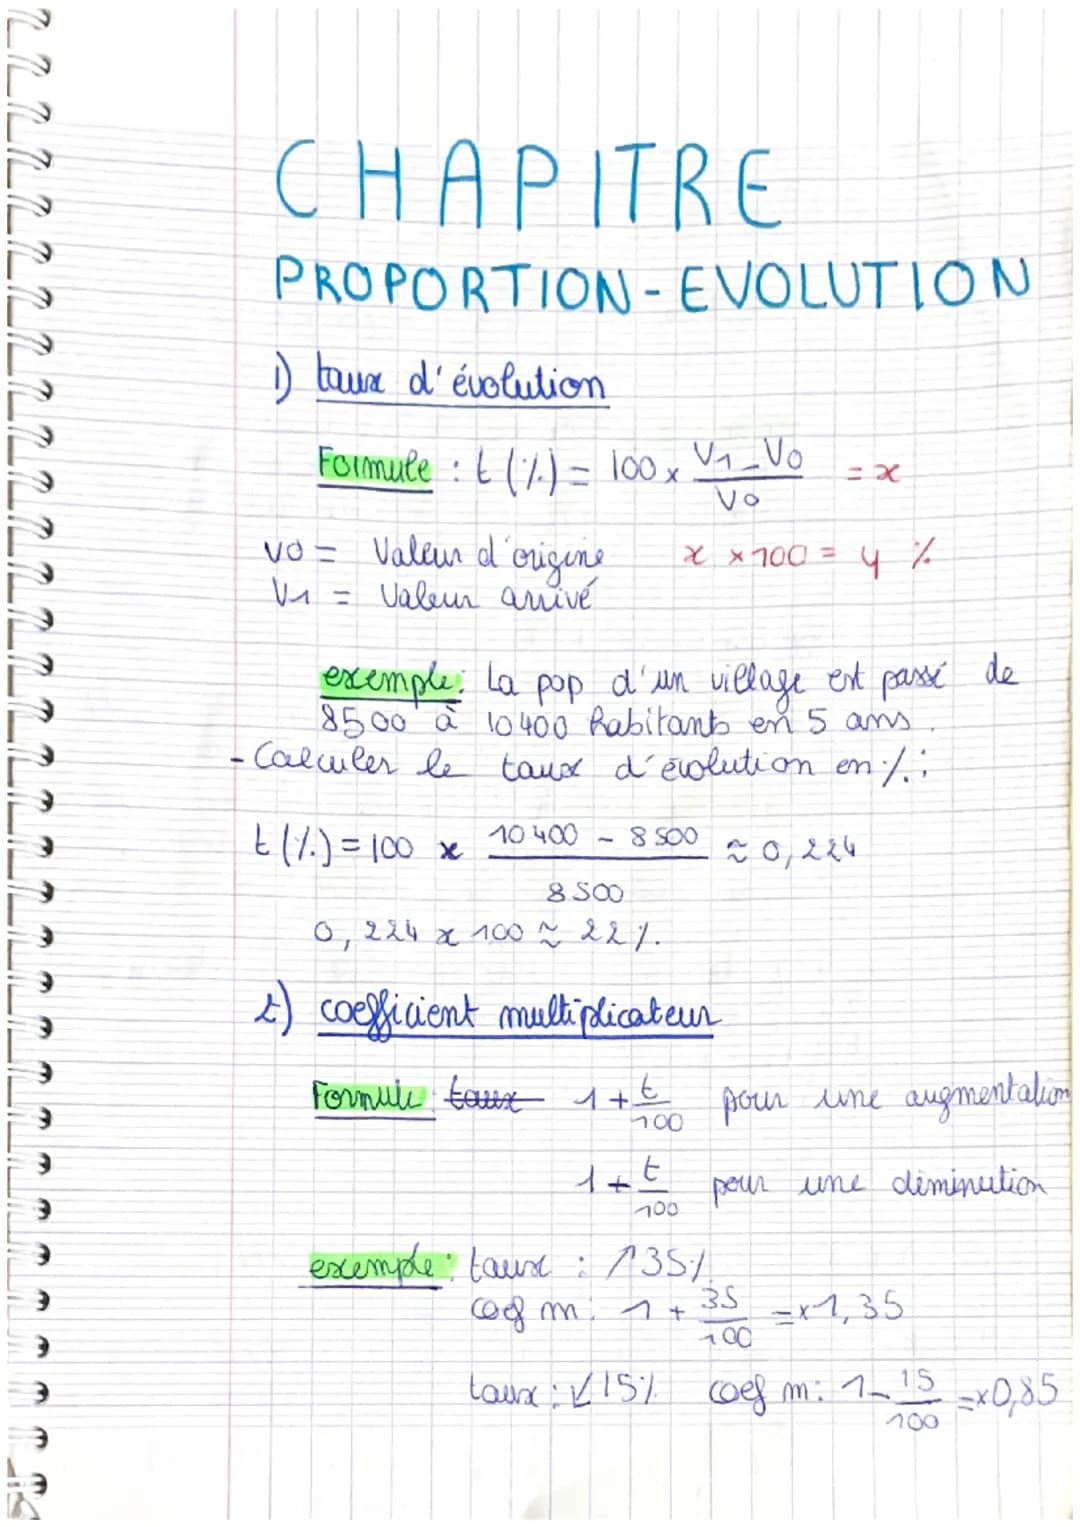 CHAPITRE
PROPORTION-EVOLUTION
1) taux d'évolution
Formule : t (%) = 100 x (V1-V0)/V0 = x
V0 = Valeur d'origine x x 100 = y %
V1 = Valeur arrivé
exemple: La pop d'un village est passé de
8500 à 10400 habitants en 5 ans.
- Calculer le taux d'évolution en % :
t (%) = 100 x (10400 - 8500)/8500 ≈ 0,224
0,224 x 100 ≈ 22%.
2) coefficient multiplicateur
Formule : taux 1 + t/100 pour une augmentation
1 + t/100 pour une diminution
exemple : taux : ↗35%
coef m: 1 + 35/100 = x1,35
taux : ↙15% coef m: 1 - 15/100 = x0,85